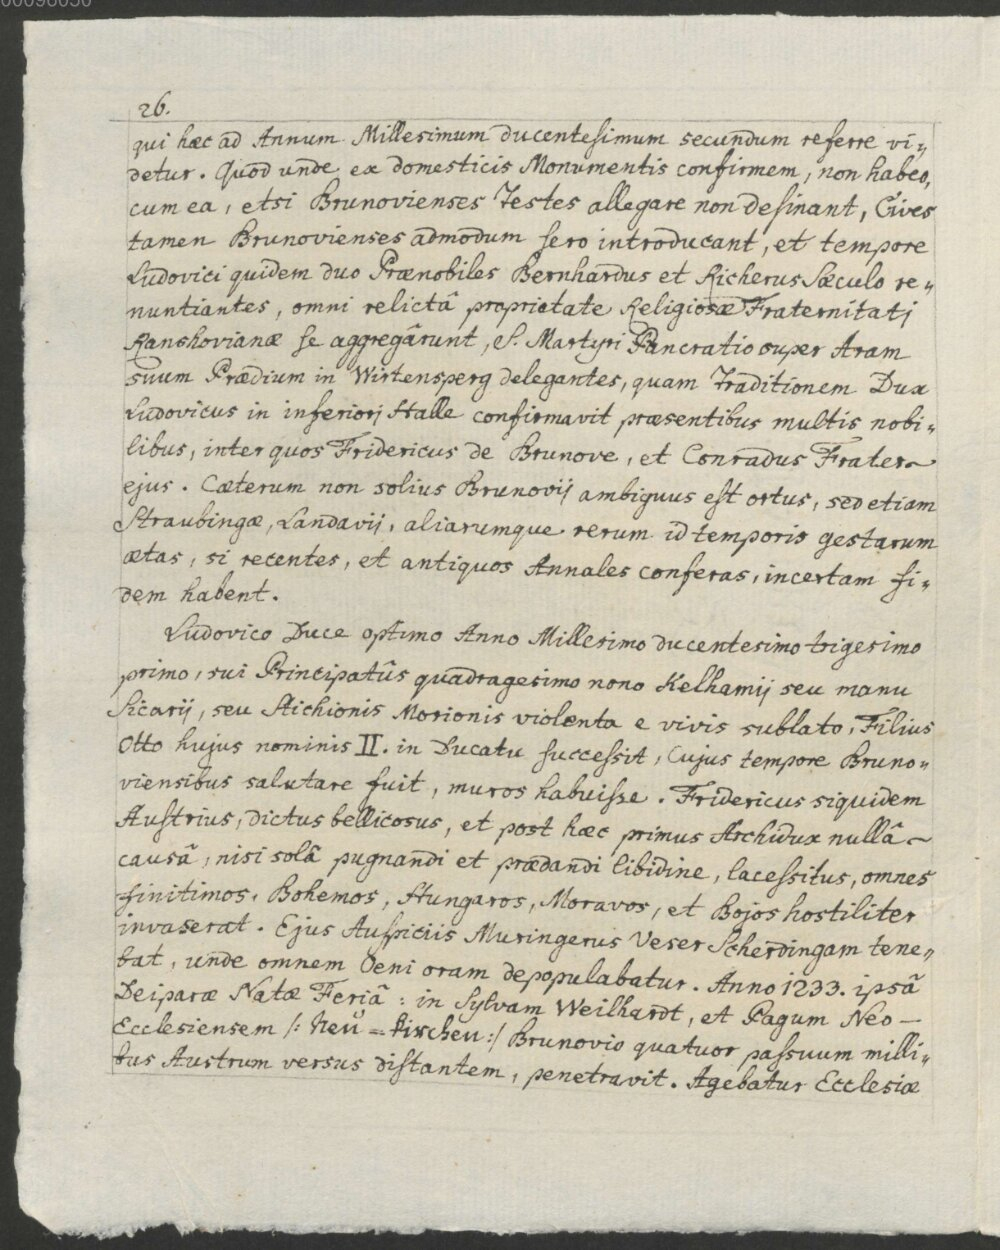 00096030
26.
qui hæc ad Annum Millesimum ducentesimum secundum referre vi„
detur. Quod unde ex domesticis Monumentis confirmem, non habeo,
cum ea, etsi Brunovienses Testes allegare non desinant, Cives
tamen Brunovienses admodum sero introducant, et tempore
Ludovici quidem duo Prænobiles Bernhardus et Richerus Sæculo re„
nuntiantes, omni relictâ proprietate Religiosæ Fraternitati
Ranshovianæ se aggregârunt, S. Martyri Pancratio super Aram
suum Prædium in Wirtensperg delegantes, quam Traditionem Dux
Ludovicus in inferiori Halle confirmavit præsentibus multis nobi„
libus, inter quos Fridericus de Brunove, et Conradus Frater
ejus. Cæterum non solius Brunovij ambiguus est ortus, sed etiam
Straubingæ, Landavij, aliarumque rerum id temporis gestarum
ætas, si recentes, et antiquos Annales conferas, incertam fi„
dem habent.
Ludovico Duce optimo Anno Millesimo ducentesimo trigesimo
primo, sui Principatûs quadragesimo nono Kelhamij seu manu
Sicarij, seu Stichionis Morionis violenta e vivis sublato, Filius
Otto hujus nominis II. in Ducatu successit, Cujus tempore Bruno„
viensibus salutare fuit, muros habuisse. Fridericus siquidem
Austrius, dictus bellicosus, et post hæc primus Archidux nullâ
causâ, nisi solâ pugnandi et prædandi libidine, lacessitus, omnes
finitimos, Bohemos, Hungaros, Moravos, et Bojos hostiliter
invaserat. Ejus Auspiciis Muringerus Veser Scherdingam tene„
bat, unde omnem Oeni oram depopulabatur. Anno 1233. ipsâ
Deiparæ Natæ Feriâ: in Sylvam Weilhardt, et Pagum Neo—
Ecclesiensem /: Neü=kirchen:/ Brunovio quatuor passuum milli„
bus Austrum versus distantem, penetravit. Agebatur Ecclesiæ